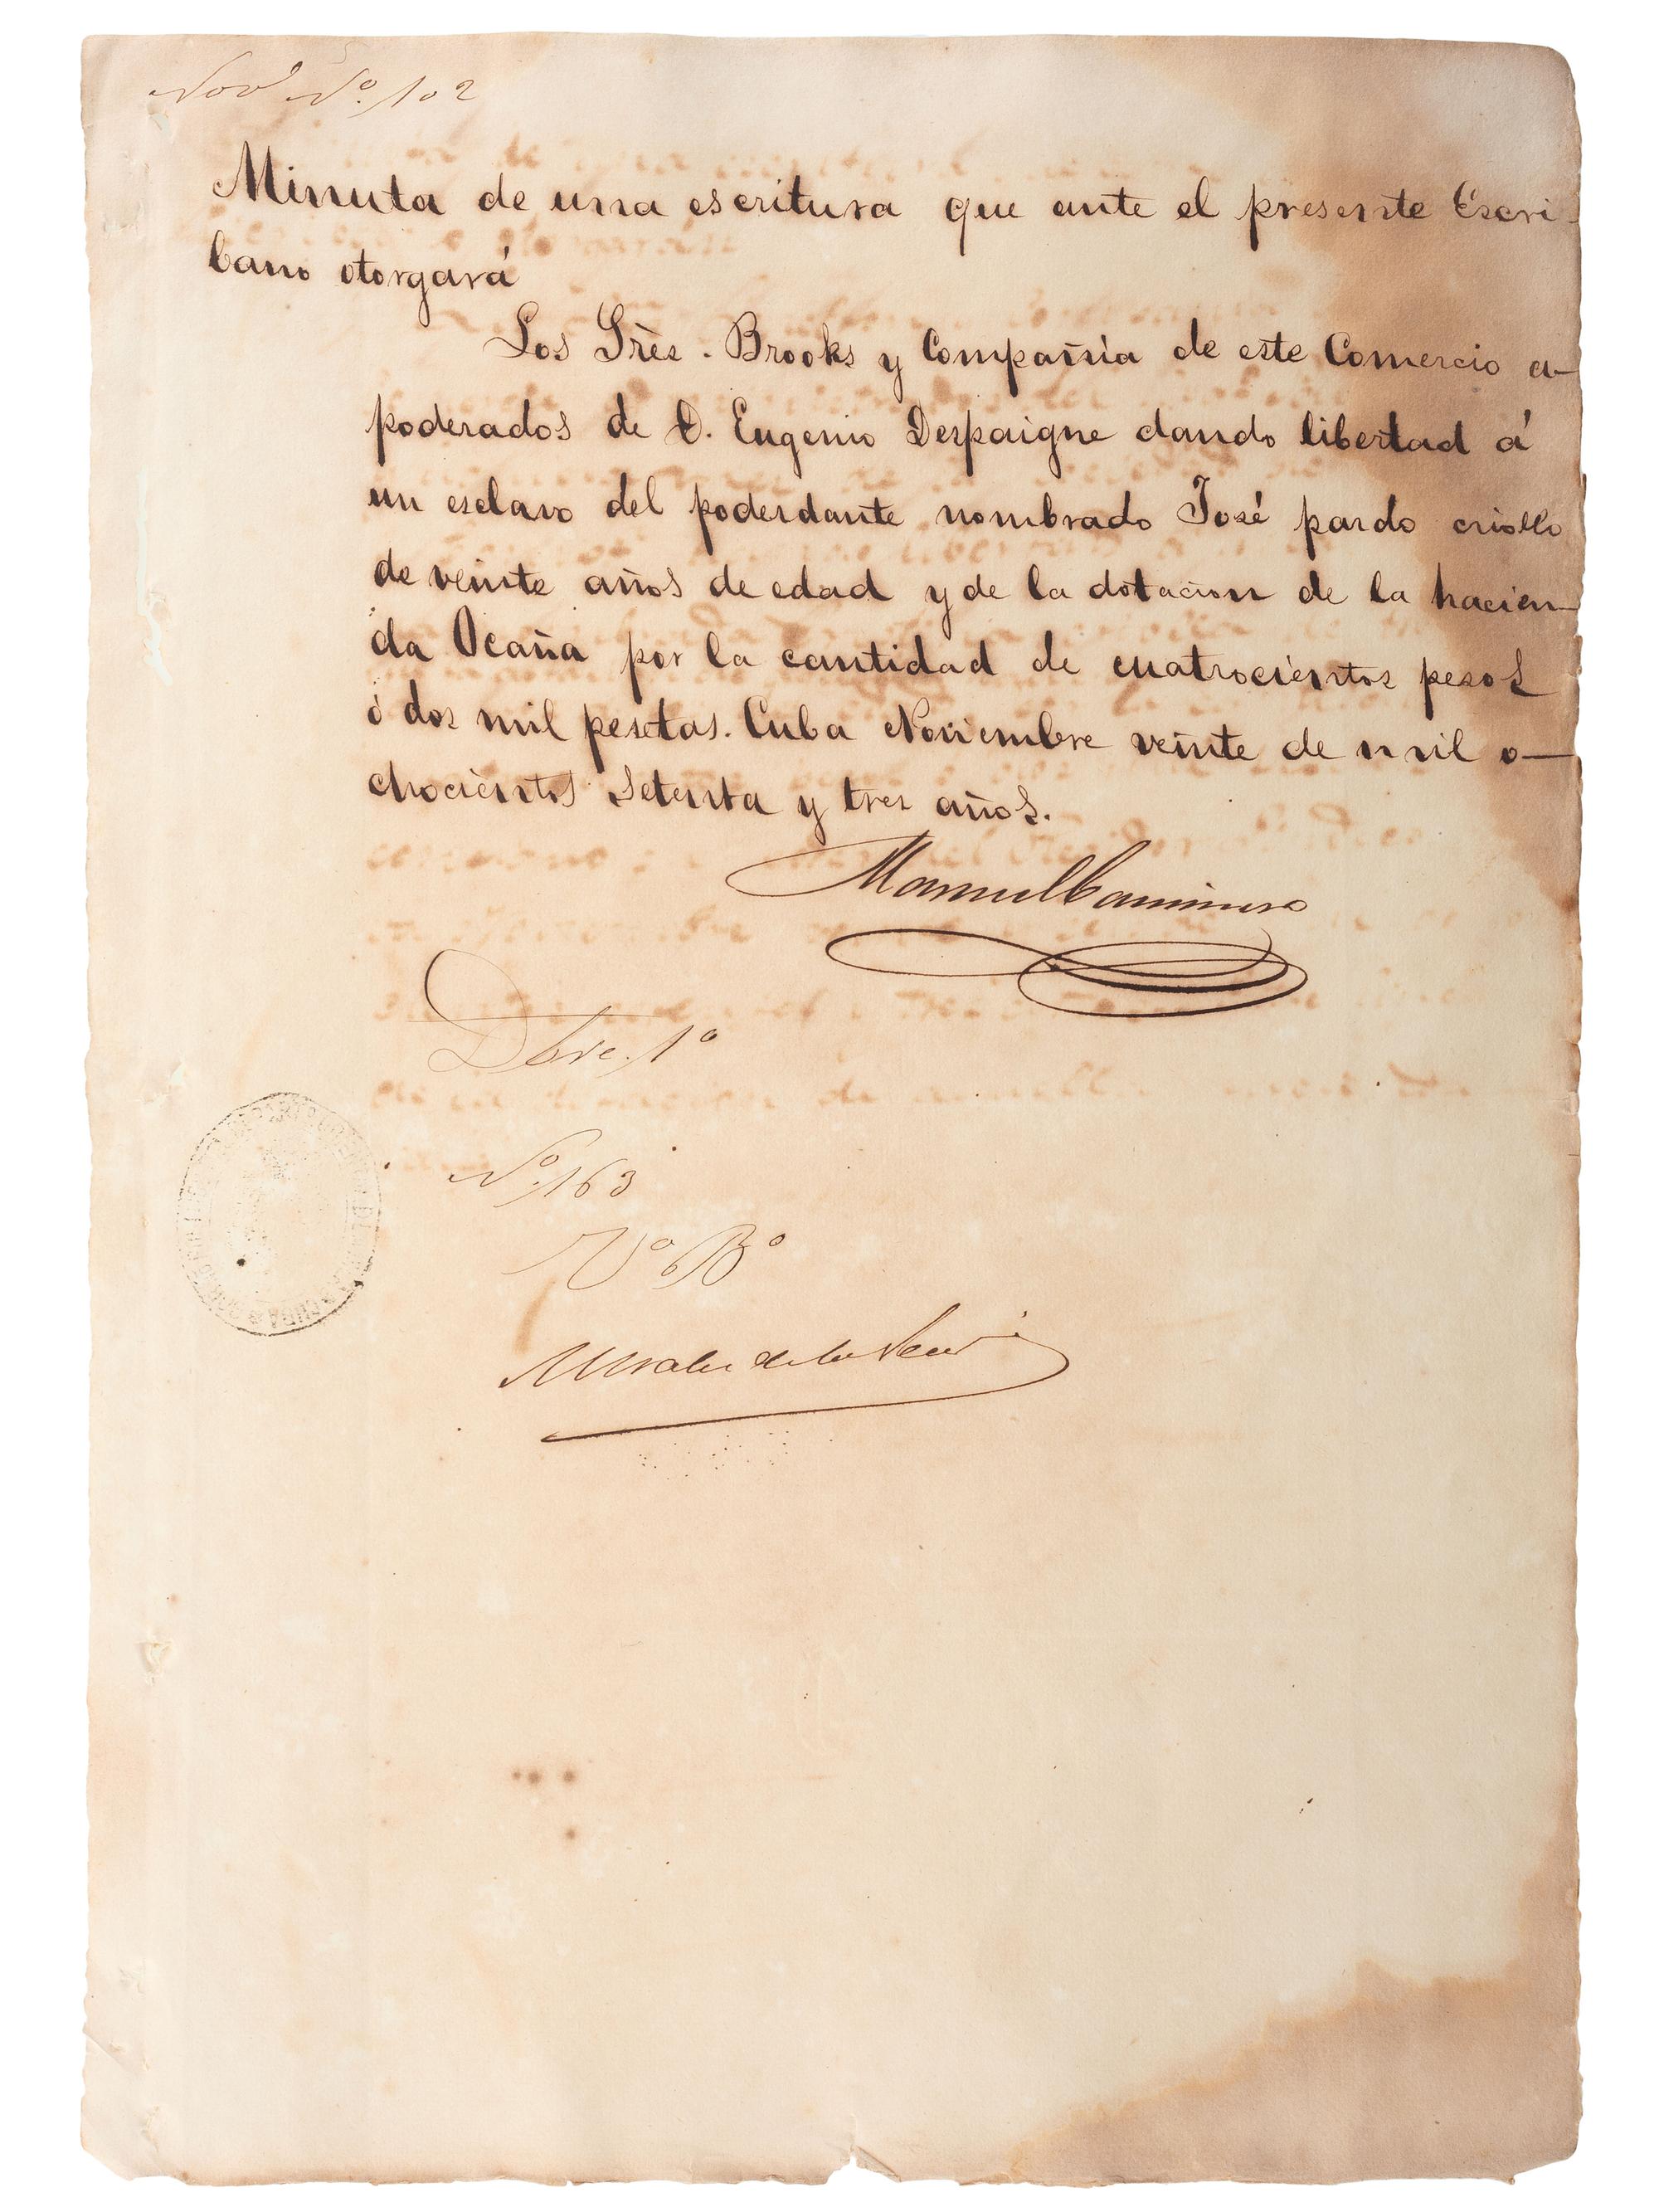 Nov.º Nº. 102
Minuta de una escritura que ante el presente Escri-
bano otorgará
Los Srès. Brooks y Compañia de este Comercio a-
poderados de D. Eugenio Despaigne dando libertad á
un esclavo del poderdante nombrado José pardo criollo
de veinte años de edad y de la dotacion de la hacien-
da Ocaña por la cantidad de cuatrocientos pesos
ó dos mil pesetas. Cuba Noviembre veinte de mil o-
chocientos setenta y tres años.
Manuel Caminero
Dbre. 1º
Nº. 163
Vº Bº